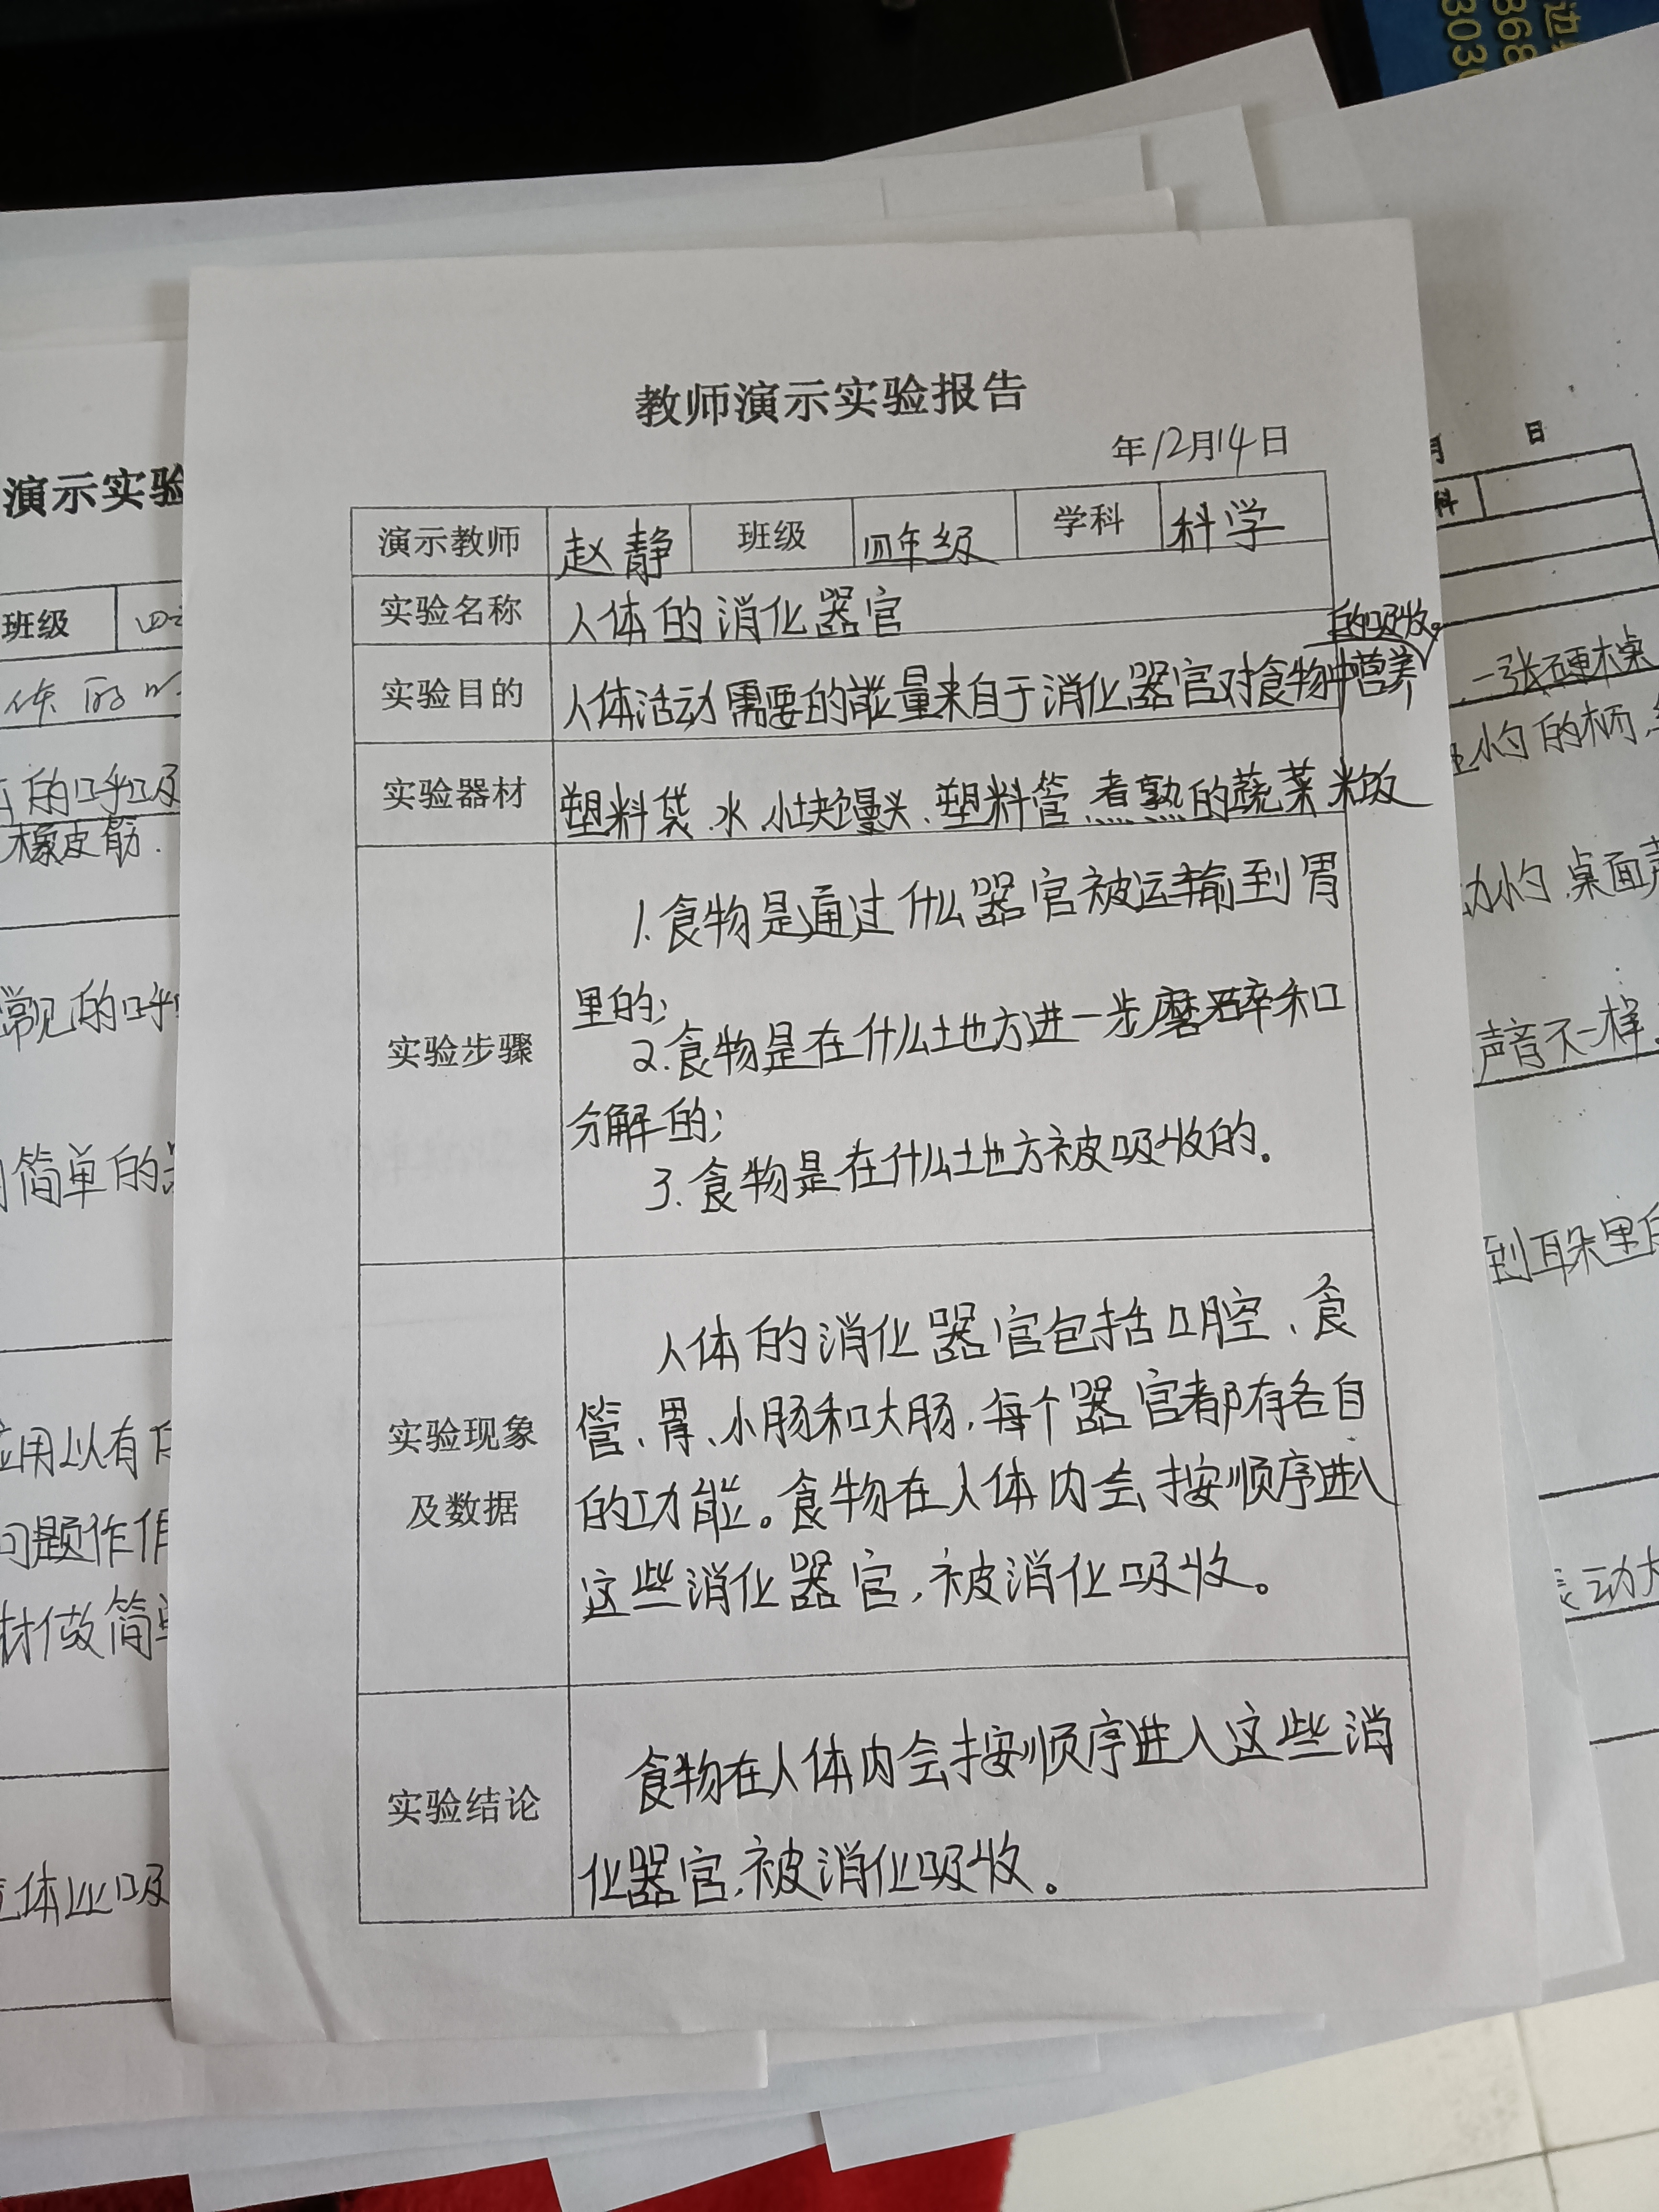 边
868
3030
教师演示实验报告
年12月14日
演示教师 赵静 班级 四年级 学科 科学
实验名称 人体的消化器官
的吸收。
实验目的 人体活动需要的能量来自于消化器官对食物中营养
实验器材 塑料袋、水、小块馒头、塑料管、煮熟的蔬菜米饭
实验步骤
1.食物是通过什么器官被运输到胃
里的;
2.食物是在什么地方进一步磨碎和
分解的;
3.食物是在什么地方被吸收的。
实验现象
及数据
人体的消化器官包括口腔、食
管、胃、小肠和大肠,每个器官都有各自
的功能。食物在人体内会按顺序进入
这些消化器官,被消化吸收。
实验结论
食物在人体内会按顺序进入这些消
化器官,被消化吸收。
演示实验
班级 四
体的
的呼吸
橡皮筋.
常见的呼
简单的
应用以有
问题作
材做简单
体
吸
月 日
科
一张硬木桌
的柄
桌面
声音不一样
到耳朵里
动